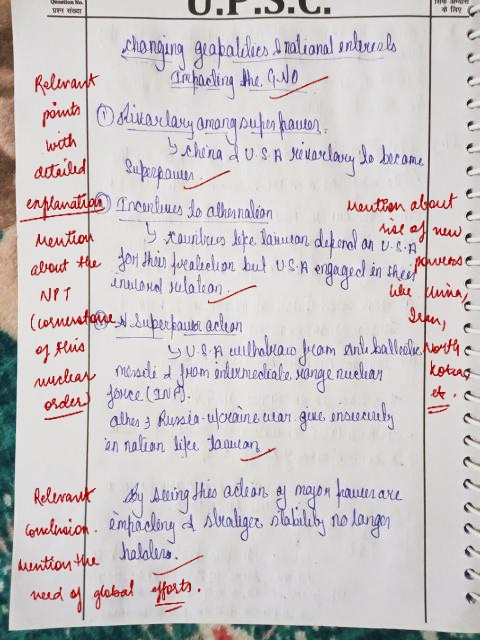 Question No.
प्रश्न संख्या
U.P.S.C.
के लिए
changing geopolitics & national interests
Impacting the GNO
① Rivarlary among super power.
↳ China & U.S.A rivarlary to became
Superpower.
Relevant
points
with
detailed
explanation
② Incentives to other nation
↳ Countries like Taiwan depend on U.S.A
for their protection but U.S.A engaged in
inward relation.
mention
about the
NPT
(cornerstone
of this
nuclear
order)
mention about
rise of new
powers
like China,
Iran,
North
Korea,
etc.
Superpower action
↳ U.S.A withdraw from anti ballestic
& from intermediate range nuclear
force (INF).
other → Russia-Ukraine war give insecurity
in nation like Taiwan
By seeing this action of major power are
impacting & strategic stability no longer
Relevant
conclusion.
mention the
need of global efforts.